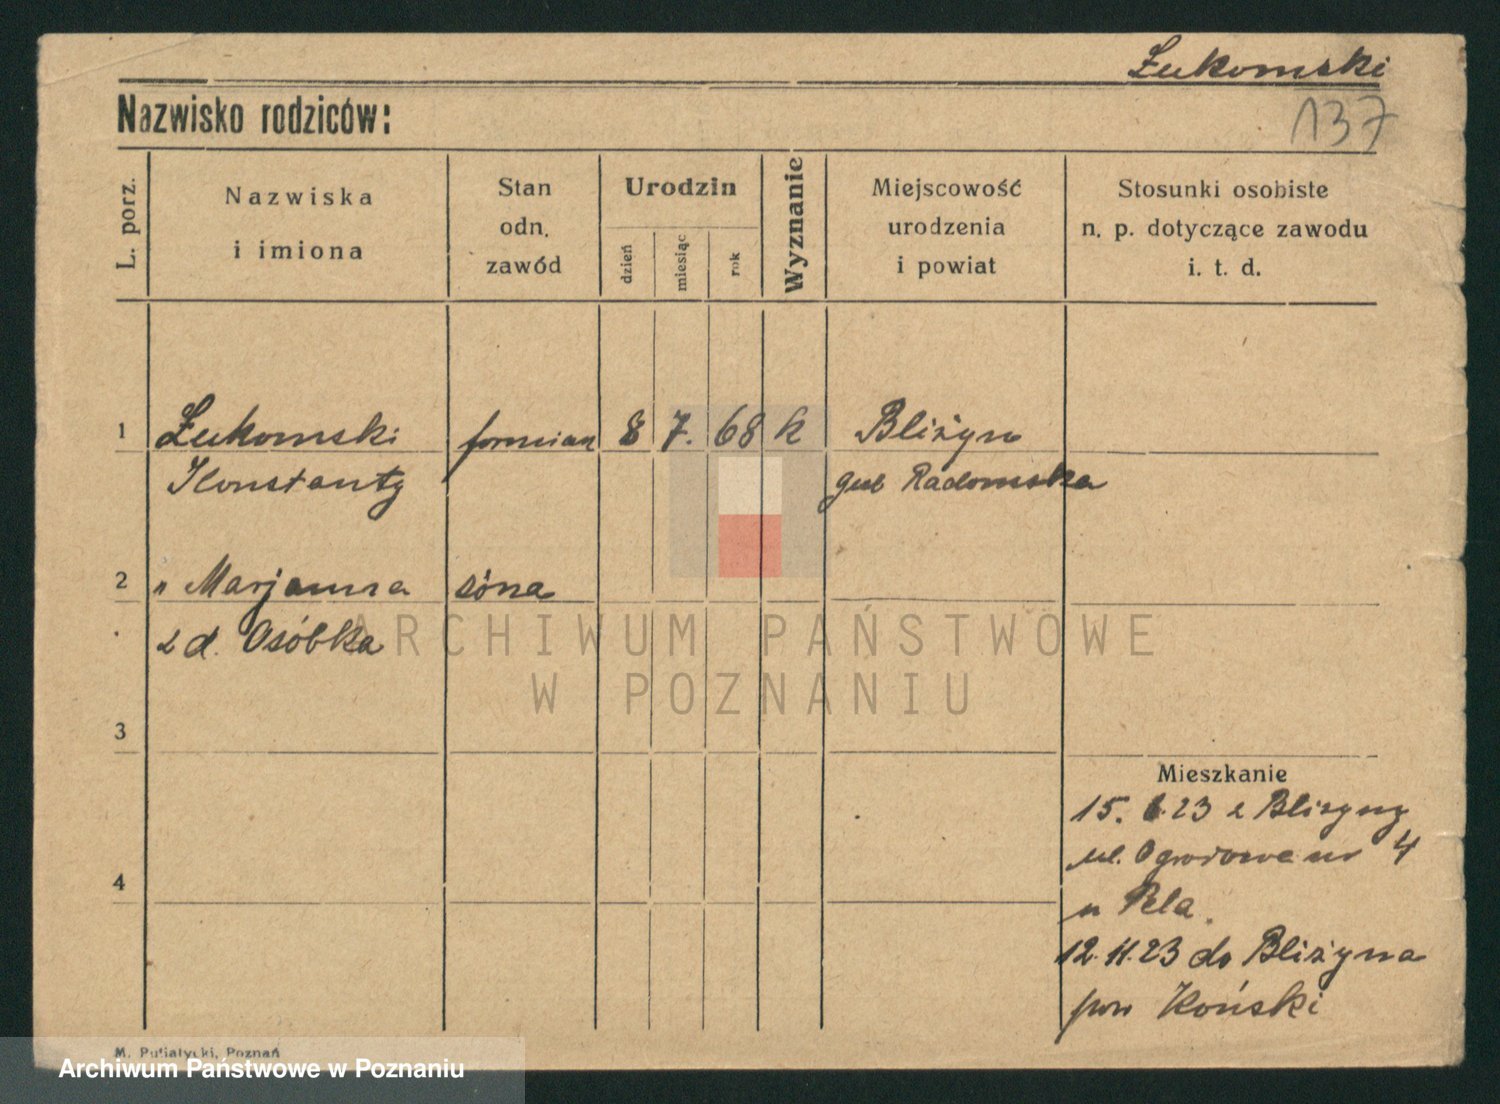 Łukomski
Nazwisko rodziców:
137
L. porz.
Nazwiska
i imiona
Stan
odn.
zawód
Urodzin
dzień
miesiąc
rok
Wyznanie
Miejscowość
urodzenia
i powiat
Stosunki osobiste
n. p. dotyczące zawodu
i. t. d.
1 Łukomski formian 8 7. 68 k Bliżyn
Konstanty gub Radomska
2 " Marjanna żona
z d. Osóbka
ARCHIWUM PAŃSTWOWE
W POZNANIU
3
Mieszkanie
15. 6. 23 z Bliżyny
ul. Ogrodowa nr 4
4
u Pela.
12. 11. 23 do Bliżyna
pow Koński
M. Putiatycki, Poznań
Archiwum Państwowe w Poznaniu